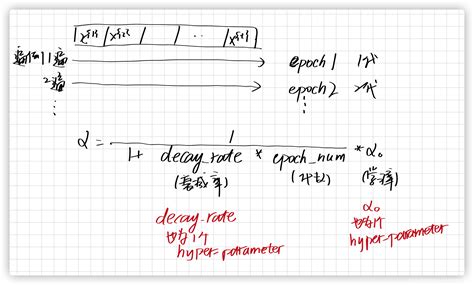 x^{1} x^{2} ... x^{t}
遍历1遍 epoch 1 1代
2遍 epoch 2 2代
⋮ ⋮
α = 1 / (1 + decay_rate * epoch_num) * α₀
(衰减率) (代数) (常数)
decay_rate
也为1个
hyper-parameter
α₀
也为1个
hyper-parameter